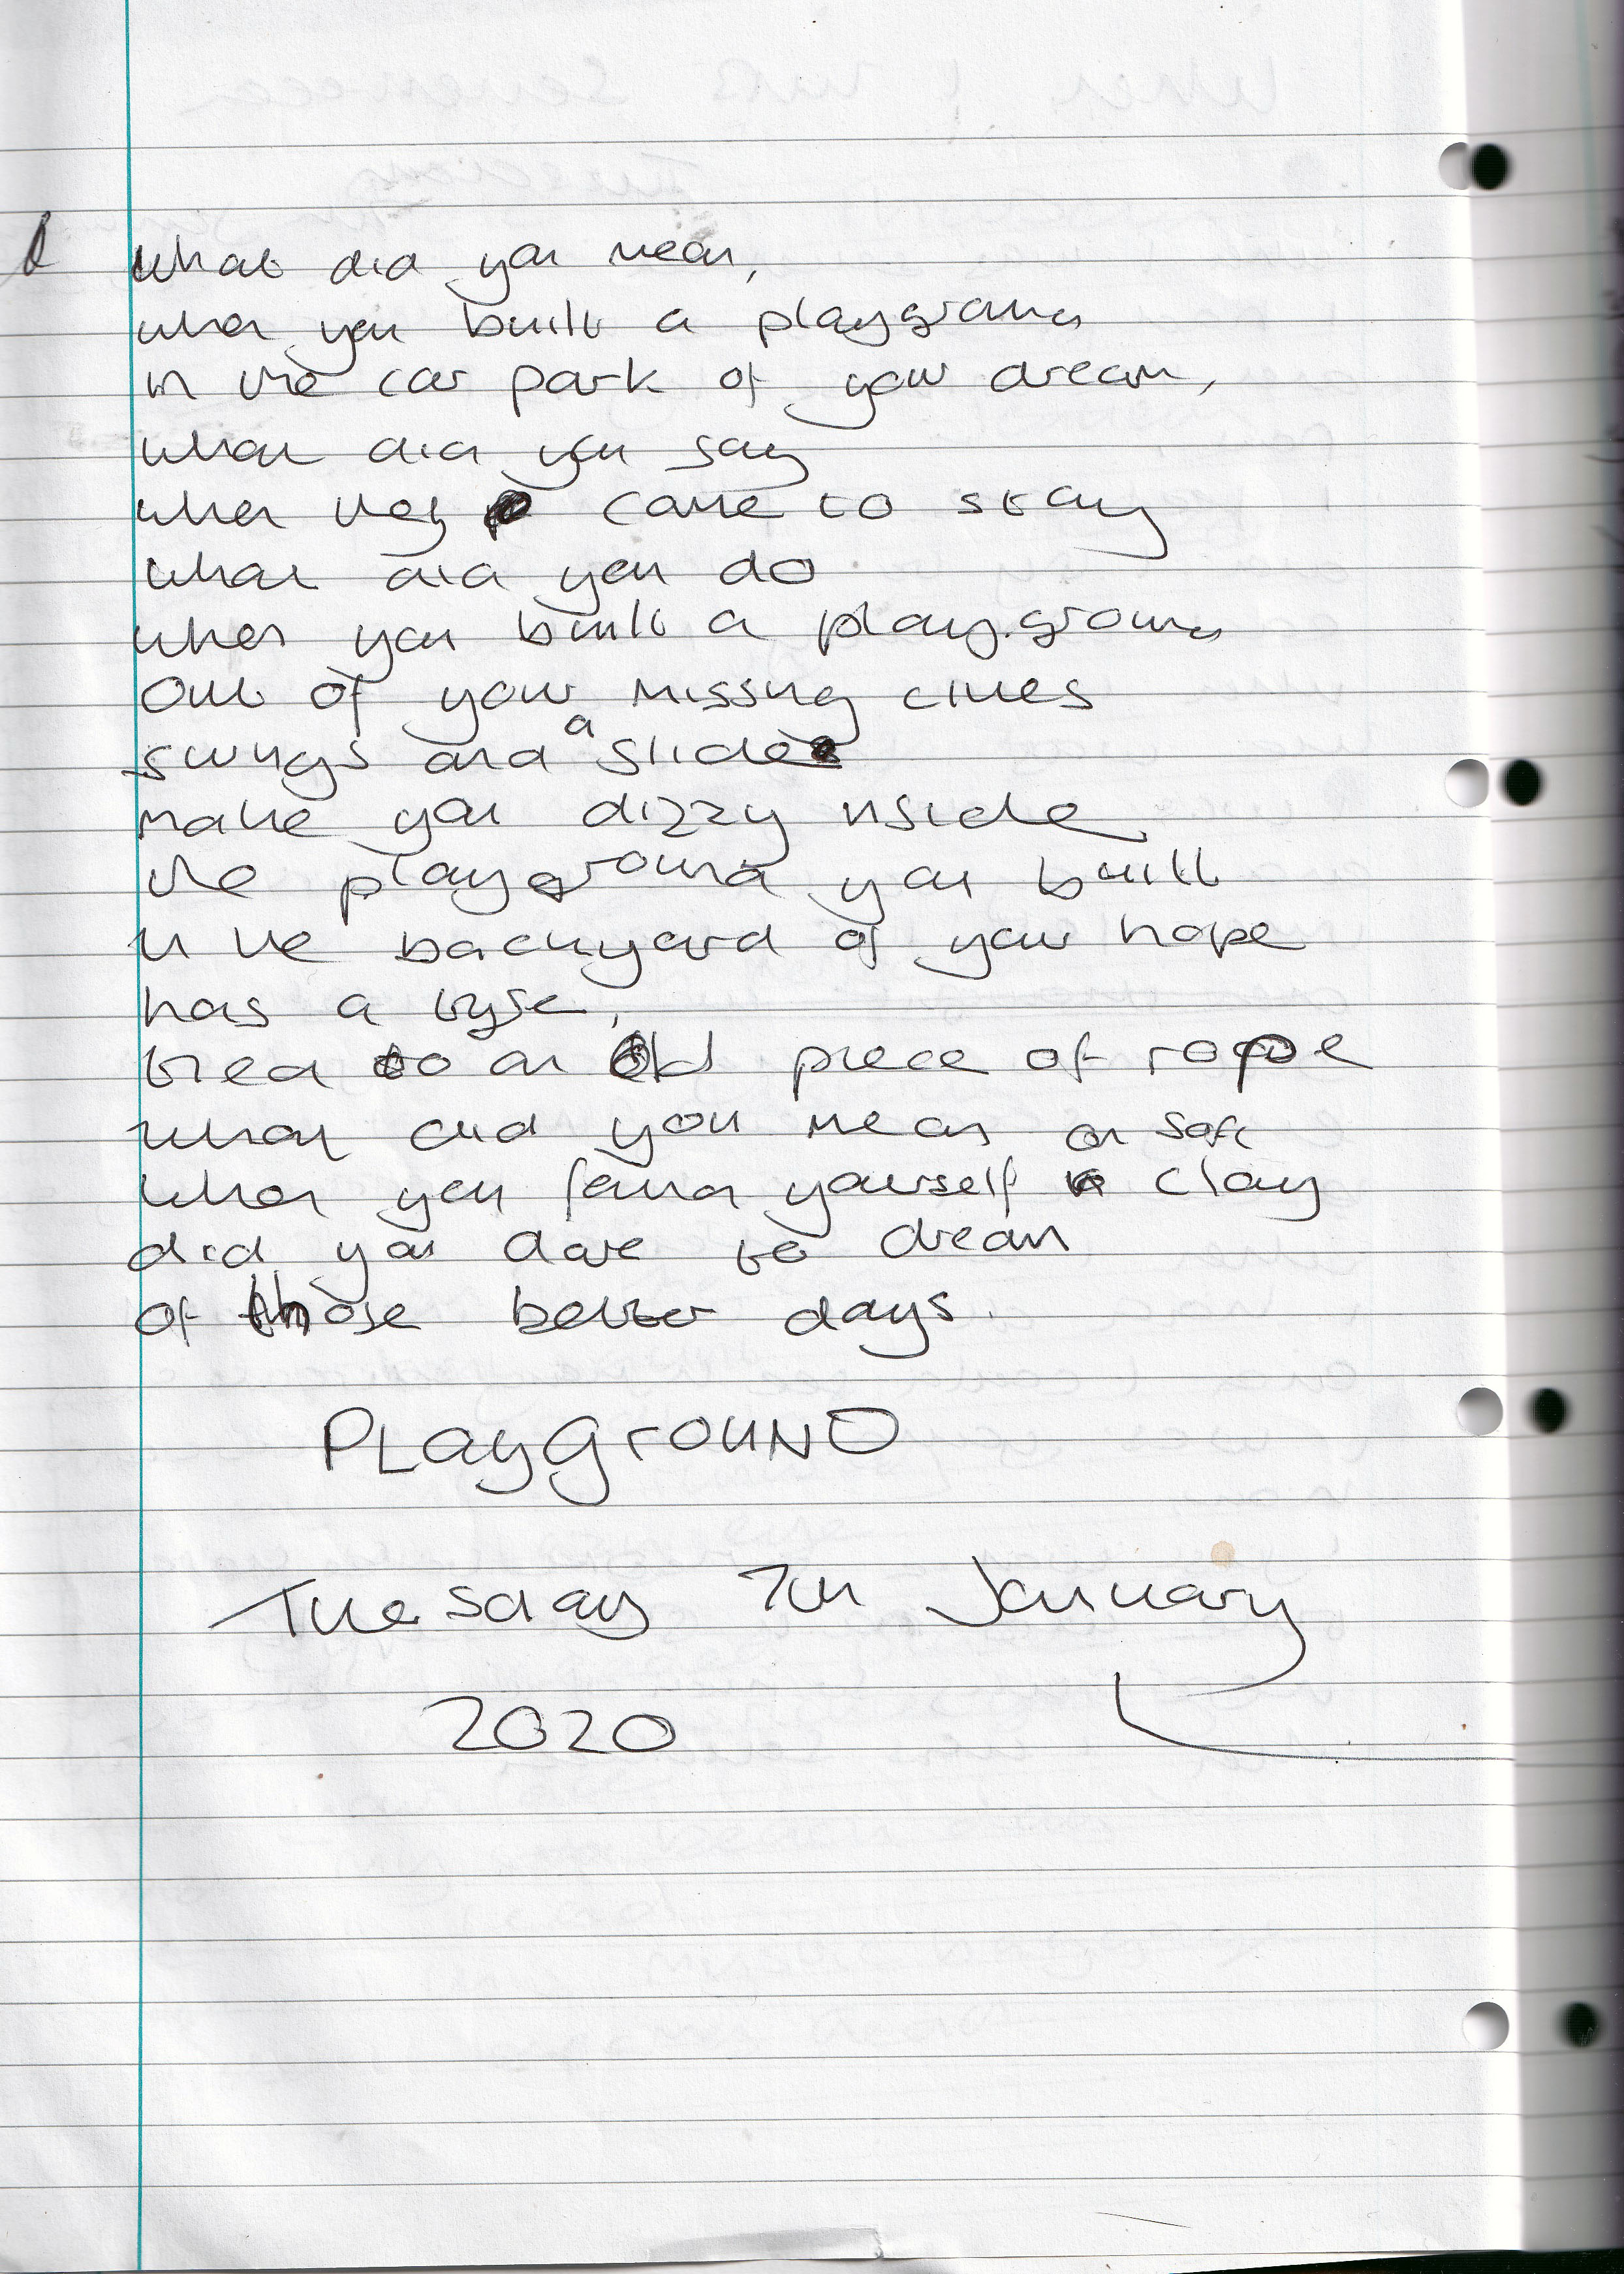 What did you mean,
when you built a playground
in the car park of your dream,
what did you say
when they came to stay
what did you do
when you built a playground
out of your missing clues
swings and a slide
make you dizzy inside
the playground you built
in the backyard of your hope
has a tyre,
tied to an old piece of rope
what did you mean or say
when you found yourself clay
did you dare to dream
of those better days.
PLAYGROUND
Tuesday 7th January
2020